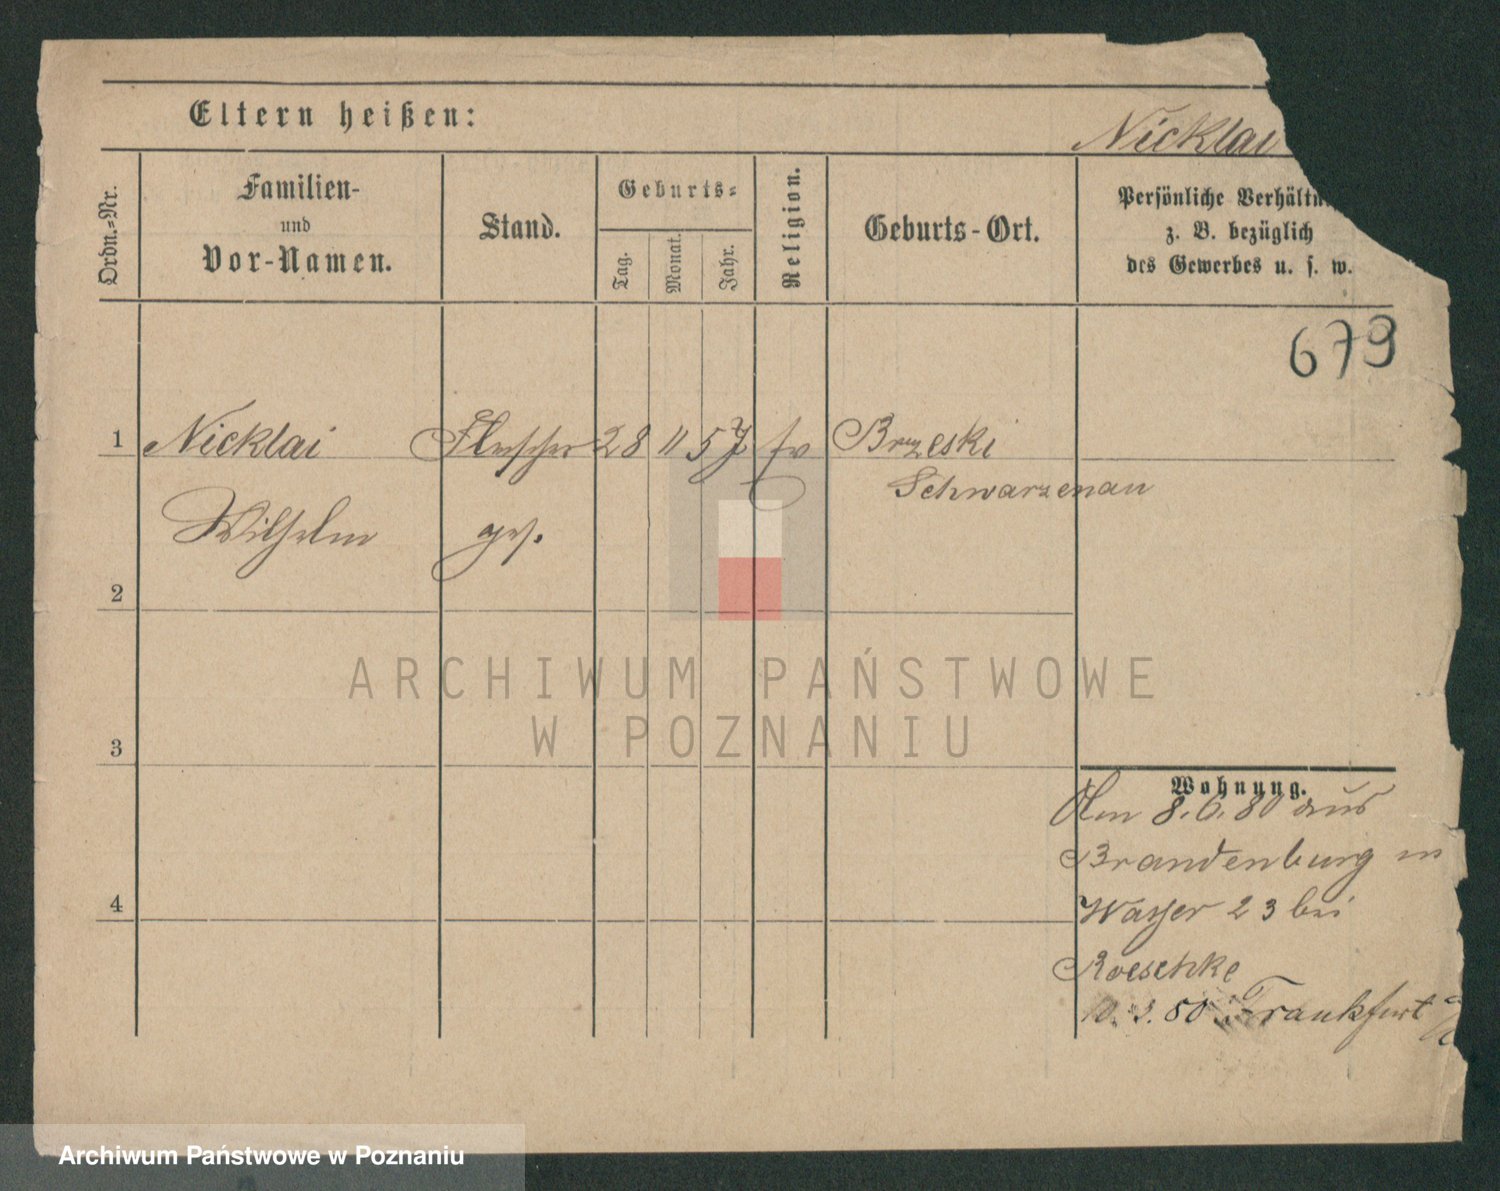 Eltern heißen:
Nicklai
Ordn.-Nr.
Familien-
und
Vor-Namen.
Stand.
Geburts-
Tag.
Monat.
Jahr.
Religion.
Geburts-Ort.
Persönliche Verhältn
z. B. bezüglich
des Gewerbes u. s. w.
679
1 Nicklai Fleischer 28 11 57 ev Brzeski
Schwarzenau
Wilhelm ges.
2
ARCHIWUM PAŃSTWOWE
W POZNANIU
3
Wohnung.
Am 8.6.80 aus
Brandenburg in
Wasser 23 bei
4
Roeschke
10. 80 Frankfurt
Archiwum Państwowe w Poznaniu